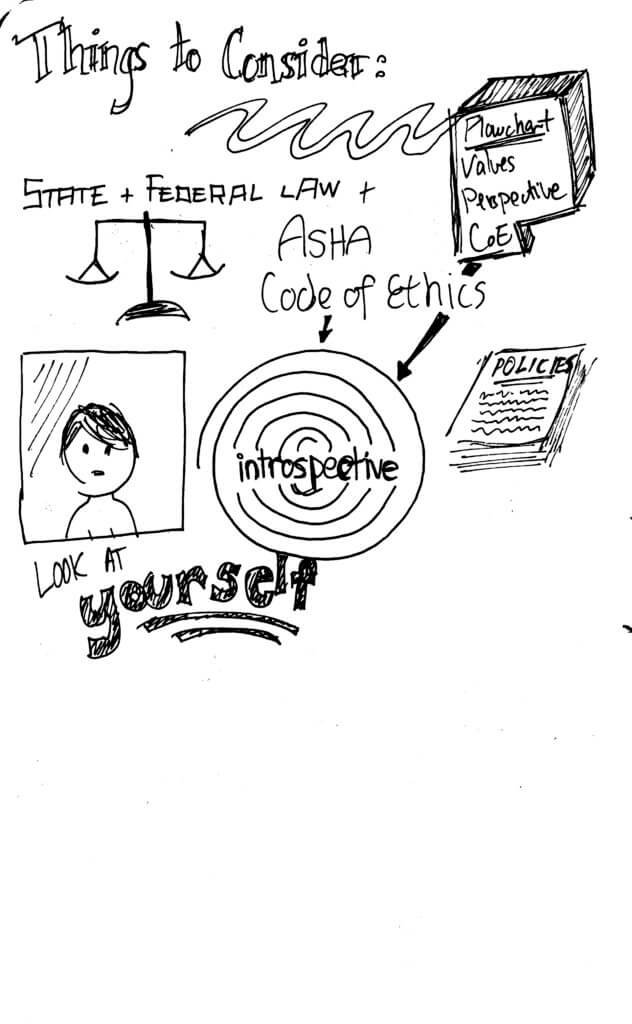 Things to Consider:
Flowchart
Values
Perspective
CoE
STATE + FEDERAL LAW +
ASHA
Code of Ethics
POLICIES
introspective
LOOK AT
yourself